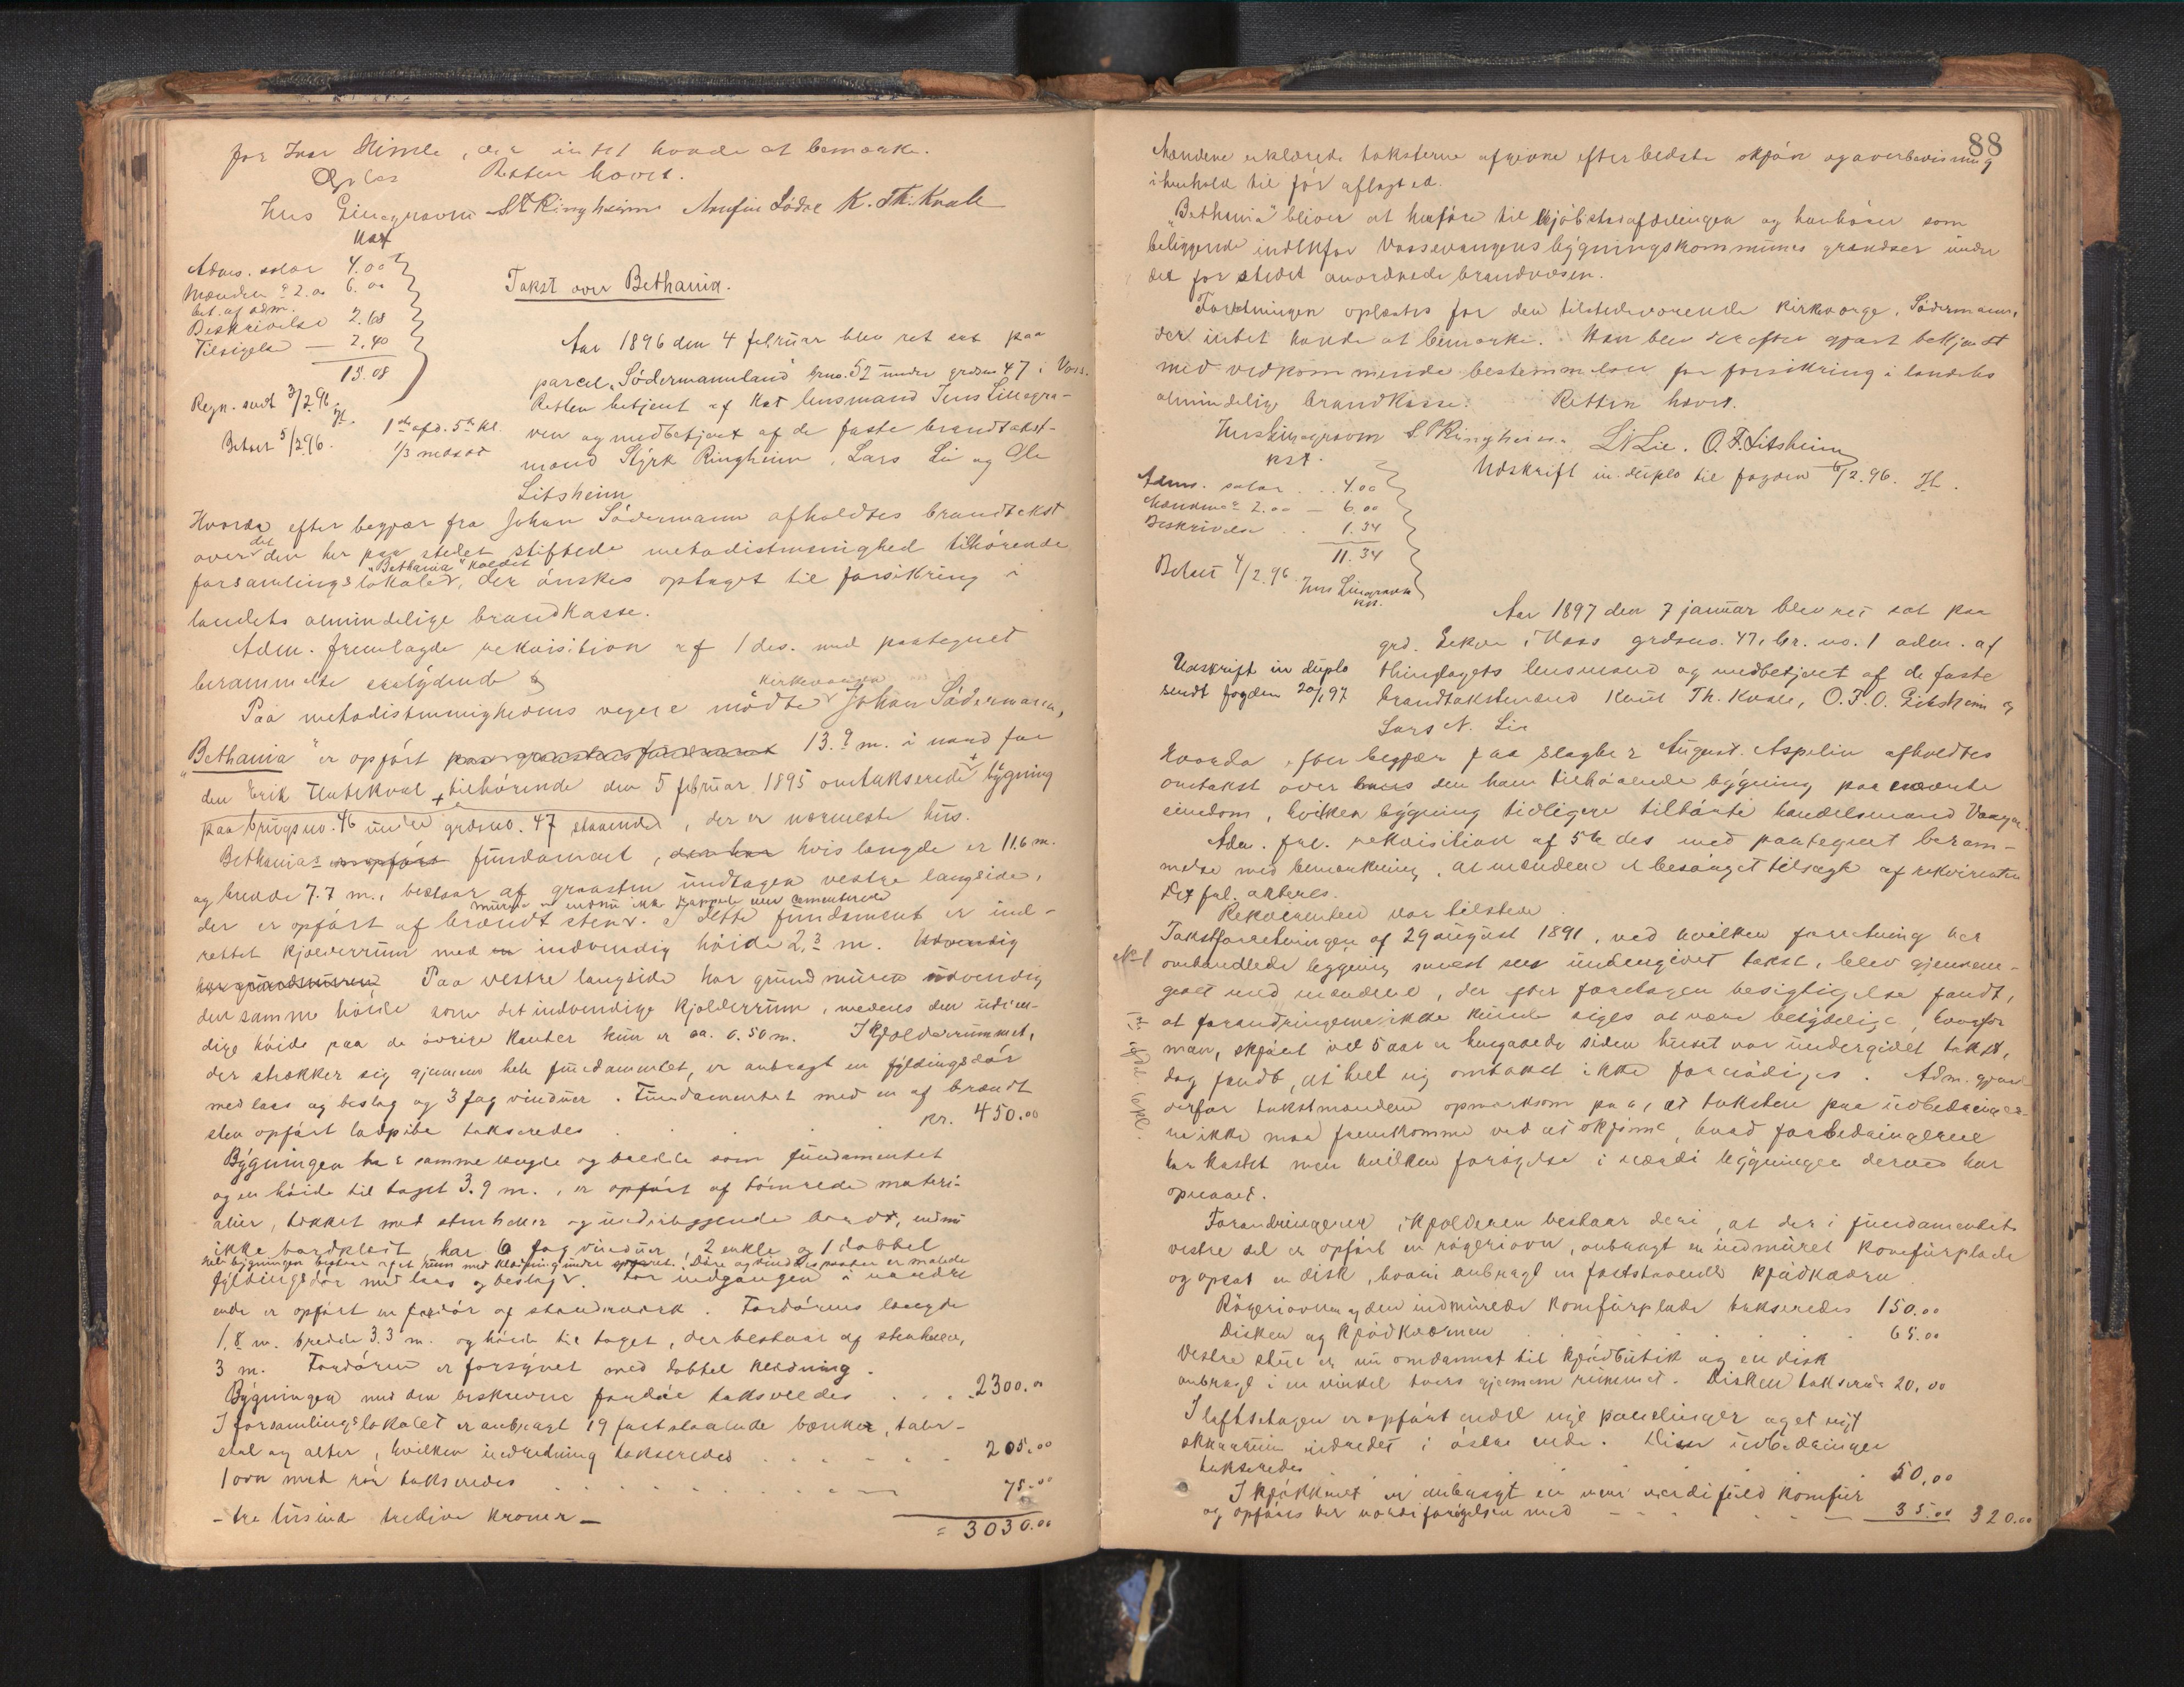 for Ivar Himle, der intet havde at bemærke.
Oplæst Retten hævet.
Jens Lillegraven S. Ringheim Arnfin Lödve K. Th. Kvale
kst
Adms. salær 4.00
Mændene a 2.00 6.00
bet. af adm.
Beskrivelse 2.68
Tilsigelse — 2.40
15.08
Regn. sendt 3/2 96.
Betalt 5/2 96.
1ste afd. 5te kl.
1/3 maxad
Takst over Bethania.
Aar 1896 den 4 februar blev ret sat paa
parcel "Södermannland" brno. 52 under grdsno 47 i Voss.
Retten betjent af kst lensmand Jens Lillegra-
ven og medbetjent af de faste brandtakst-
mænd Styrk Ringheim, Lars Lie og Ole
Litsheim
Hvorda efter begjær fra Johan Södermann afholdtes brandtakst
over det den her paa stedet stiftede metodistmenighed tilhörende
"Bethania" kaldet
forsamlingslokale, der önskes optaget til forsikring i
landets almindelige brandkasse.
Adm. fremlagde rekvisition af 1 ds. med paategnet
berammelse saalydende
kirkeværgen
Paa metodistmenighedens vegne mödte Johan Södermann,
"Bethania" er opfört 13.9 m. i nord for
den Erik Uutekval tilhörende den 5 februar 1895 omtakserede bygning
paa brugsno. 46 under grdsno. 47 staaende, der er nærmeste hus.
Bethanias er opfört fundament, der har hvis længde er 11.6 m.
og bredde 7.7 m., bestaar af graasten undtagen vestre langside,
murene er endnu ikke rappede men cementerede
der er opfört af brændt sten. I dette fundament er ind-
rettet kjælderrum med en indvendig höide 2.3 m. Udvendig
har grundmuren Paa vestre langside har grundmuren udvendig
den samme höide som det indvendige kjælderrum, medens den udven-
dige höide paa de övrige kanter kun er ca. 0.50 m. I kjælderrummet,
der strækker sig gjennem hele fundamentet, er anbragt en fyldingsdör
med laas og beslag og 3 fag vinduer. Fundamentet med en af brændt
sten opfört ladpibe takseredes . . . kr. 450.00
Bygningen har samme længde og bredde som fundamentet
og en höide til taget 3.9 m., er opfört af tömrede materi-
alier, tækket med stenheller og underliggende bord, endnu
ikke bordklædt, har 6 fag vinduer, 2 enkle og 1 dobbel
Hele bygningen bestaar af et rum med klædning under . Döre og vindueskarter er malede
fyldingsdör med laas og beslag. For indgangen i nordre
ende er opfört en fordör af standerværk. Fordörens længde
1.8 m. bredde 3.3 m. og höide til taget, der bestaar af stenheller,
3 m. Fordören er forsynet med dobbel klædning.
Bygningen med den beskrevne fordör takseredes . . . 2300.00
I forsamlingslokalet er anbragt 19 faststaaende bænker, taler-
stol og alter, hvilken indredning takseredes . . . . . 205.00
1 ovn med rör takseredes . . . . . . . 75.00
- tre tusinde tredive kroner - = 3030.00
88
Mændene erklærede taksterne afgivne efter bedste skjön og overbevisning
i henhold til för aflagt ed.
"Bethania" bliver at henföre til kjöbstadafdelingen og henhörer som
beliggende indenfor Vossevangens bygningskommunes grændser under
det for stedet anordnede brandvæsen.
Forretningen oplæstes for den tilstedeværende kirkeværge, Södermann,
der intet havde at bemærke. Han blev derefter gjort bekjendt
med vedkommende bestemmelser for forsikring i landets
almindelige brandkasse. Retten hævet.
Jens Lillegraven S. Ringheim. L N Lie. O. F. Litsheim
kst.
Udskrift in duplo til fogden 6/2. 96. Jl.
Adms. salær . . . 4.00
Mændene a 2.00 — 6.00
Beskrivelse . . 1.34
11.34
Betalt 4/2. 96. Jens Lillegraven
kst.
Aar 1897 den 7 januar blev ret sat paa
grd. Lekve i Voss grdsno. 47, br. no. 1 adm. af
Udskrift in duplo
sendt fogden 20/1 97
thinglagets lensmand og medbetjent af de faste
brandtakstmænd Knut Th. Kvale, O. F. O. Litsheim og
Lars N. Lie
Hvorda efter begjær fra slagter August Aspelin afholdtes
omtakst over den ham tilhörende bygning paa nævnte
eiendom, hvilken bygning tidligere tilhörte handelsmand Vangen.
Adm. frl. rekvisition af 5te ds med paategnet beram-
melse med bemærkning, at mændene er besörget tilsagt af rekvirenten
Det frl. akteres.
Rekvirenten var tilstede.
Takstforretningen af 29 august 1891, ved hvilken forretning her
No 1
omhandlede bygning senest sees undergivet takst, blev gjennem-
gaaet med mændene, der efter foretagen besigtigelse fandt,
at forandringerne ikke kunde siges at være betydelige, hvorfor
man, skjönt vel 5 aar er hengaaede siden huset var undergivet takst,
1ste afdl. 6 kl.
dog fandt, at helt ny omtakst ikke fornödiges. Adm. gjorde
derfor takstmændene opmærksom paa, at taksten paa udbedringer-
ne ikke maa fremkomme ved at skjönne, hvad forbedringerne
har kostet men hvilken forögelse i værdi bygningen derved har
opnaaet.
Forandringerne i kjælderen bestaar deri, at der i fundamentets
vestre del er opfört en rögeriovn, anbragt en indmuret komfurplade
og opsat en disk, hvori anbragt en faststaaende kjödkværn
Rögeriovnen og den indmurede komfurplade takseredes 150.00
Disken og kjödkværnen . . . . 65.00
Vestre stue er nu omdannet til kjödbutik og en disk
anbragt i en vinkel tvers gjennem rummet. Disken takseredes 20.00
I loftsetagen er opfört endel nye panelinger og et nyt
rum indredet i östre ende. Disse udbedringer
takseredes . . . . . 50.00
I kjökkenet er anbragt en mere værdifuld komfur
og opföres her værdiforögelsen med - - - 35.00 320.00